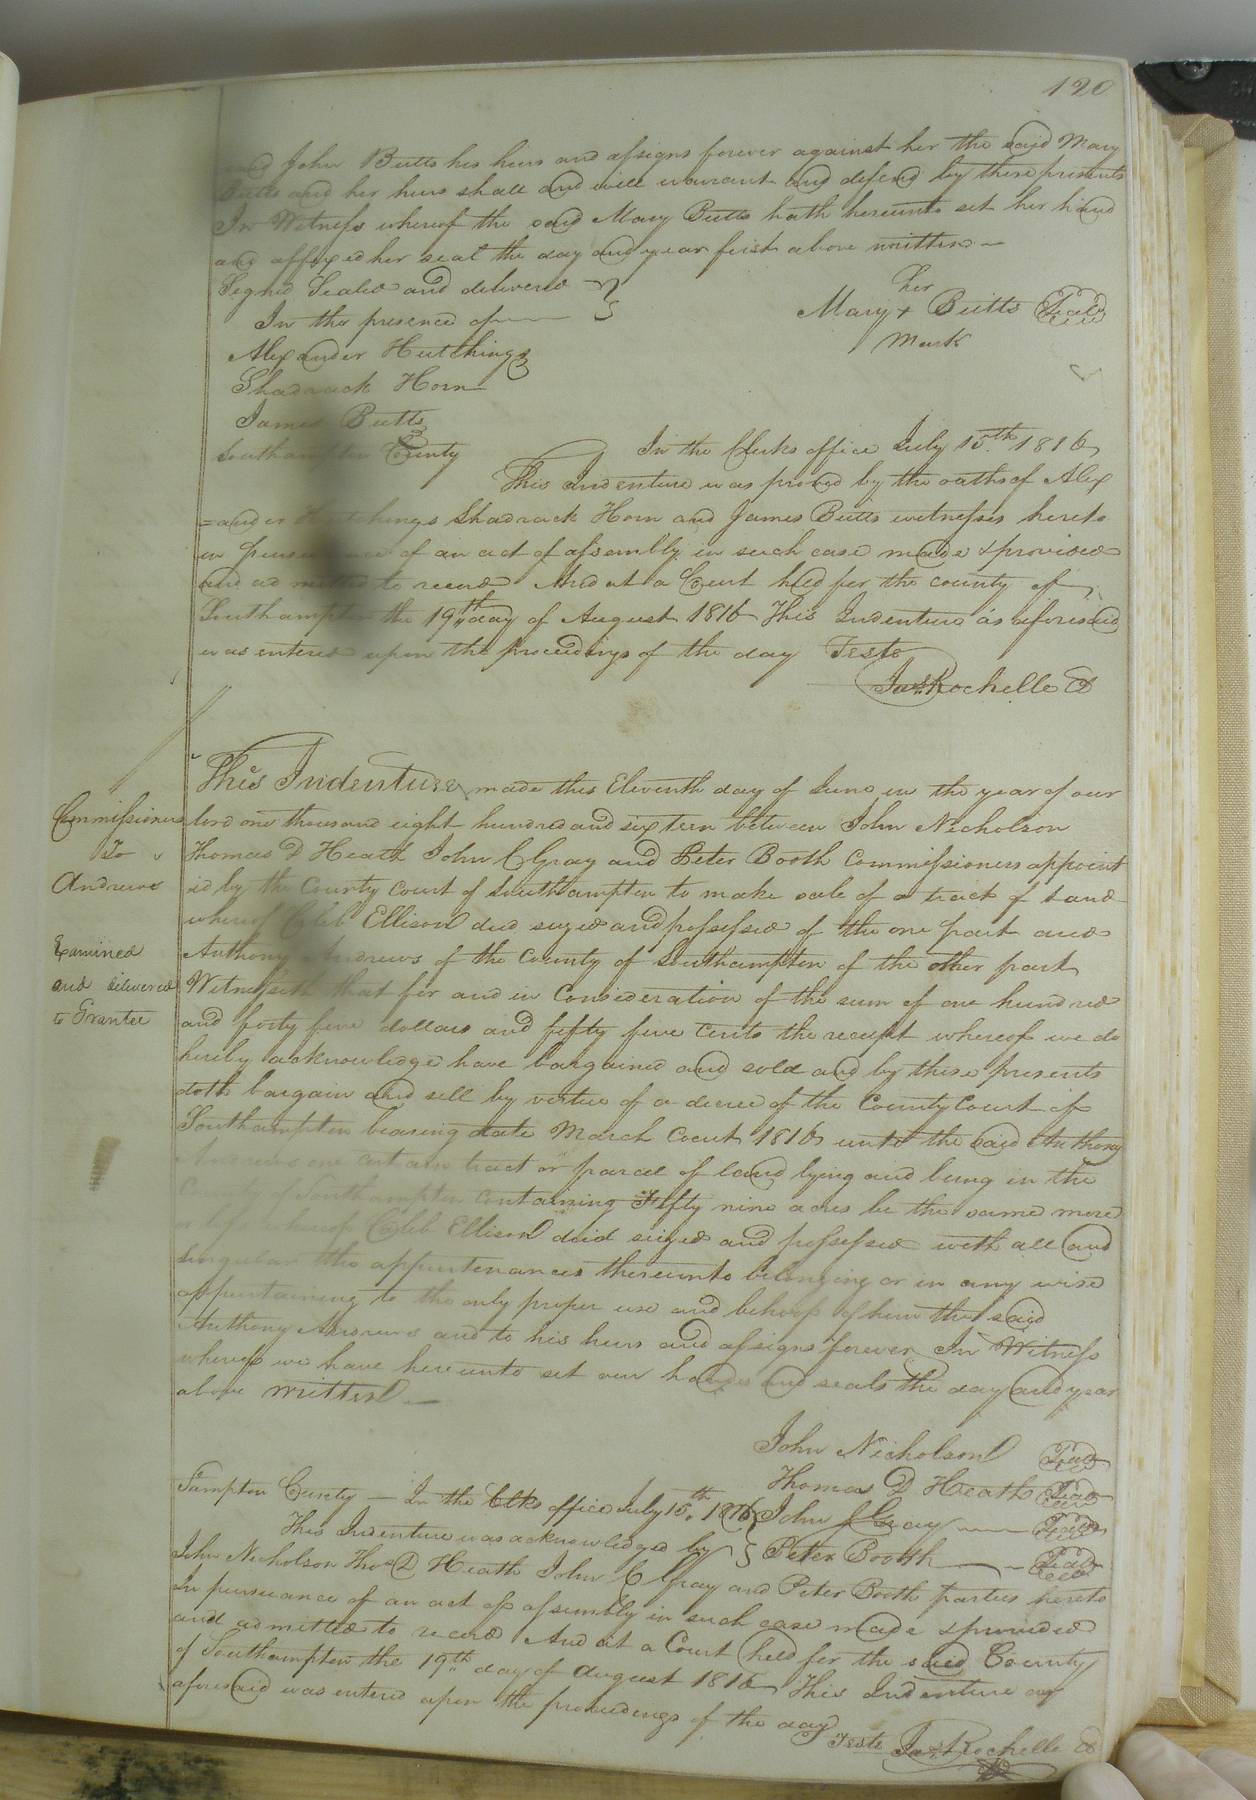 120
said John Butts his heirs and assigns forever against her the said Mary
Butts and her heirs shall and will warrant and defend by these presents
In Witness whereof the said Mary Butts hath hereunto set her hand
and affixed her seal the day and year first above written
Signed Sealed and delivered
In the presence of
her
Mary + Butts Seal
mark
Alexander Hutchings
Shadrack Horn
James Butts
Southampton County
In the Clerks office July 15th. 1816
This Indenture was proved by the oaths of Alex
=ander Hutchings Shadrack Horn and James Butts witnesses hereto
in pursuance of an act of assembly in such case made & provided
and admitted to record And at a Court held for the county of
Southampton the 19th day of August 1816 This Indenture as aforesaid
was entered upon the proceedings of the day Teste
Jas. Rochelle C
Commissioners
To
Andrews
Examined
and delivered
to Grantee
This Indenture made this Eleventh day of June in the year of our
lord one thousand eight hundred and sixteen between John Nicholson
Thomas D Heath John C Gray and Peter Booth Commissioners appoint
ed by the County Court of Southampton to make sale of a tract of Land
whereof Caleb Ellison died seized and possessed of the one part and
Anthony Andrews of the County of Southampton of the other part
Witnesseth that for and in Consideration of the sum of one hundred
and forty five dollars and fifty five Cents the receipt whereof we do
hereby acknowledge have bargained and sold and by these presents
doth bargain and sell by virtue of a decree of the County Court of
Southampton bearing date March Court 1816 unto the said Anthony
Andrews one certain tract or parcel of land lying and being in the
County of Southampton Containing Fifty nine acres be the same more
or less whereof Caleb Ellison died seized and possessed with all and
singular the appurtenances thereunto belonging or in any wise
appurtaining to the only proper use and behoof of him the said
Anthony Andrews and to his heirs and assigns forever In Witness
whereof we have hereunto set our hands and seals the day and year
above written
John Nicholson Seal
Thomas D Heath Seal
John C Gray Seal
Peter Booth Seal
Sampton County — In the Clks office July 15th. 1816
This Indenture was acknowledged by
John Nicholson Thos D Heath John C Gray and Peter Booth parties hereto
In pursuance of an act of assembly in such case made & provided
and admitted to record And at a Court held for the said County
of Southampton the 19th day of August 1816 This Indenture as
aforesaid was entered upon the proceedings of the day
Teste Jas. Rochelle C